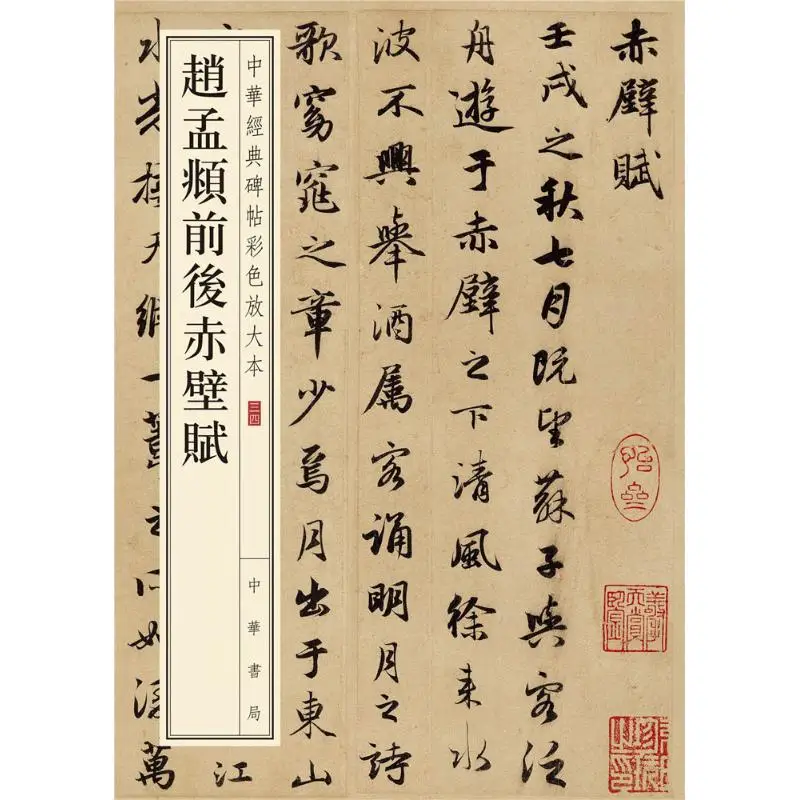 赤壁賦
壬戌之秋七月既望蘇子與客泛
舟遊于赤壁之下清風徐来水
波不興舉酒属客誦明月之詩
歌窈窕之章少焉月出于東山
中華經典碑帖彩色放大本 三四
中華書局
趙孟頫前後赤壁賦
江
水光接天縱一葦之所如淩萬